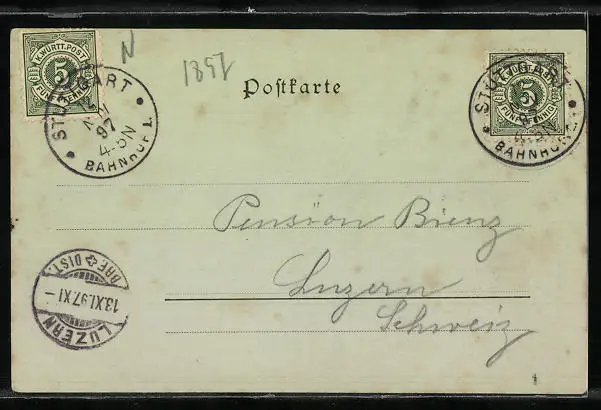 K.WÜRTT.POST
5
FÜNF PFENNIG
STUTTGART
97
4-5N
BAHNHOF 1.
N
1897
Postkarte
STUTTGART
BAHNHOF
5
FÜNF PFENNIG
Pension Bienz
Luzern
Schweiz
BRF. DIST.
13.XI.97.XI-
LUZERN